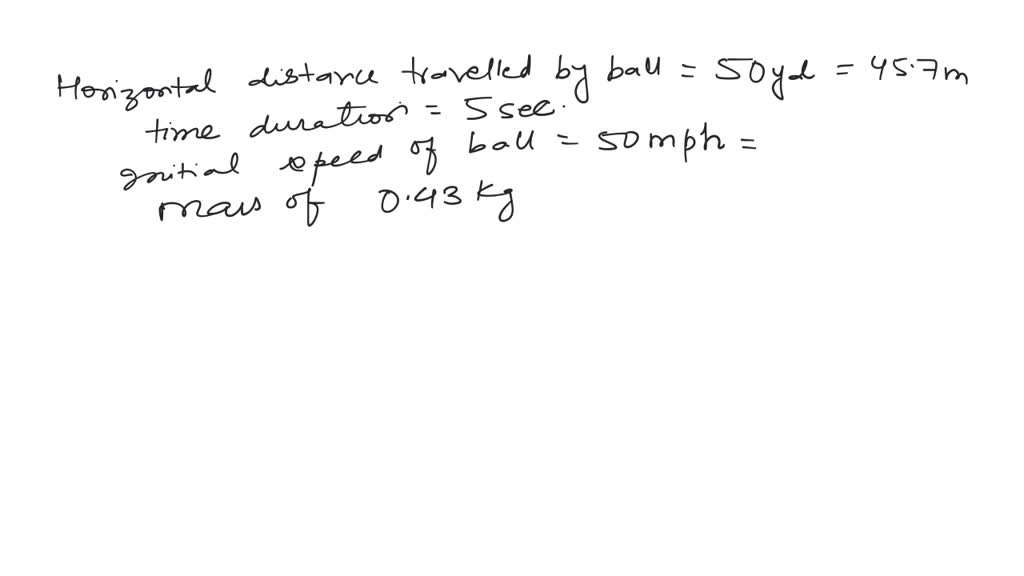 Horizontal distance travelled by ball = 50yd = 45.7m
time duration = 5 sec.
Initial speed of ball = 50 mph =
mass of 0.43 kg